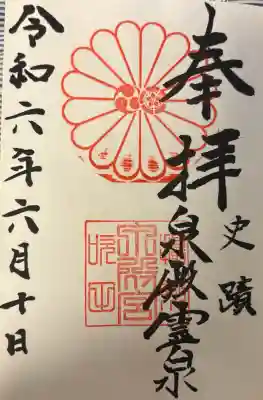 奉拝
史蹟
泉殿霊泉
令和六年六月十日